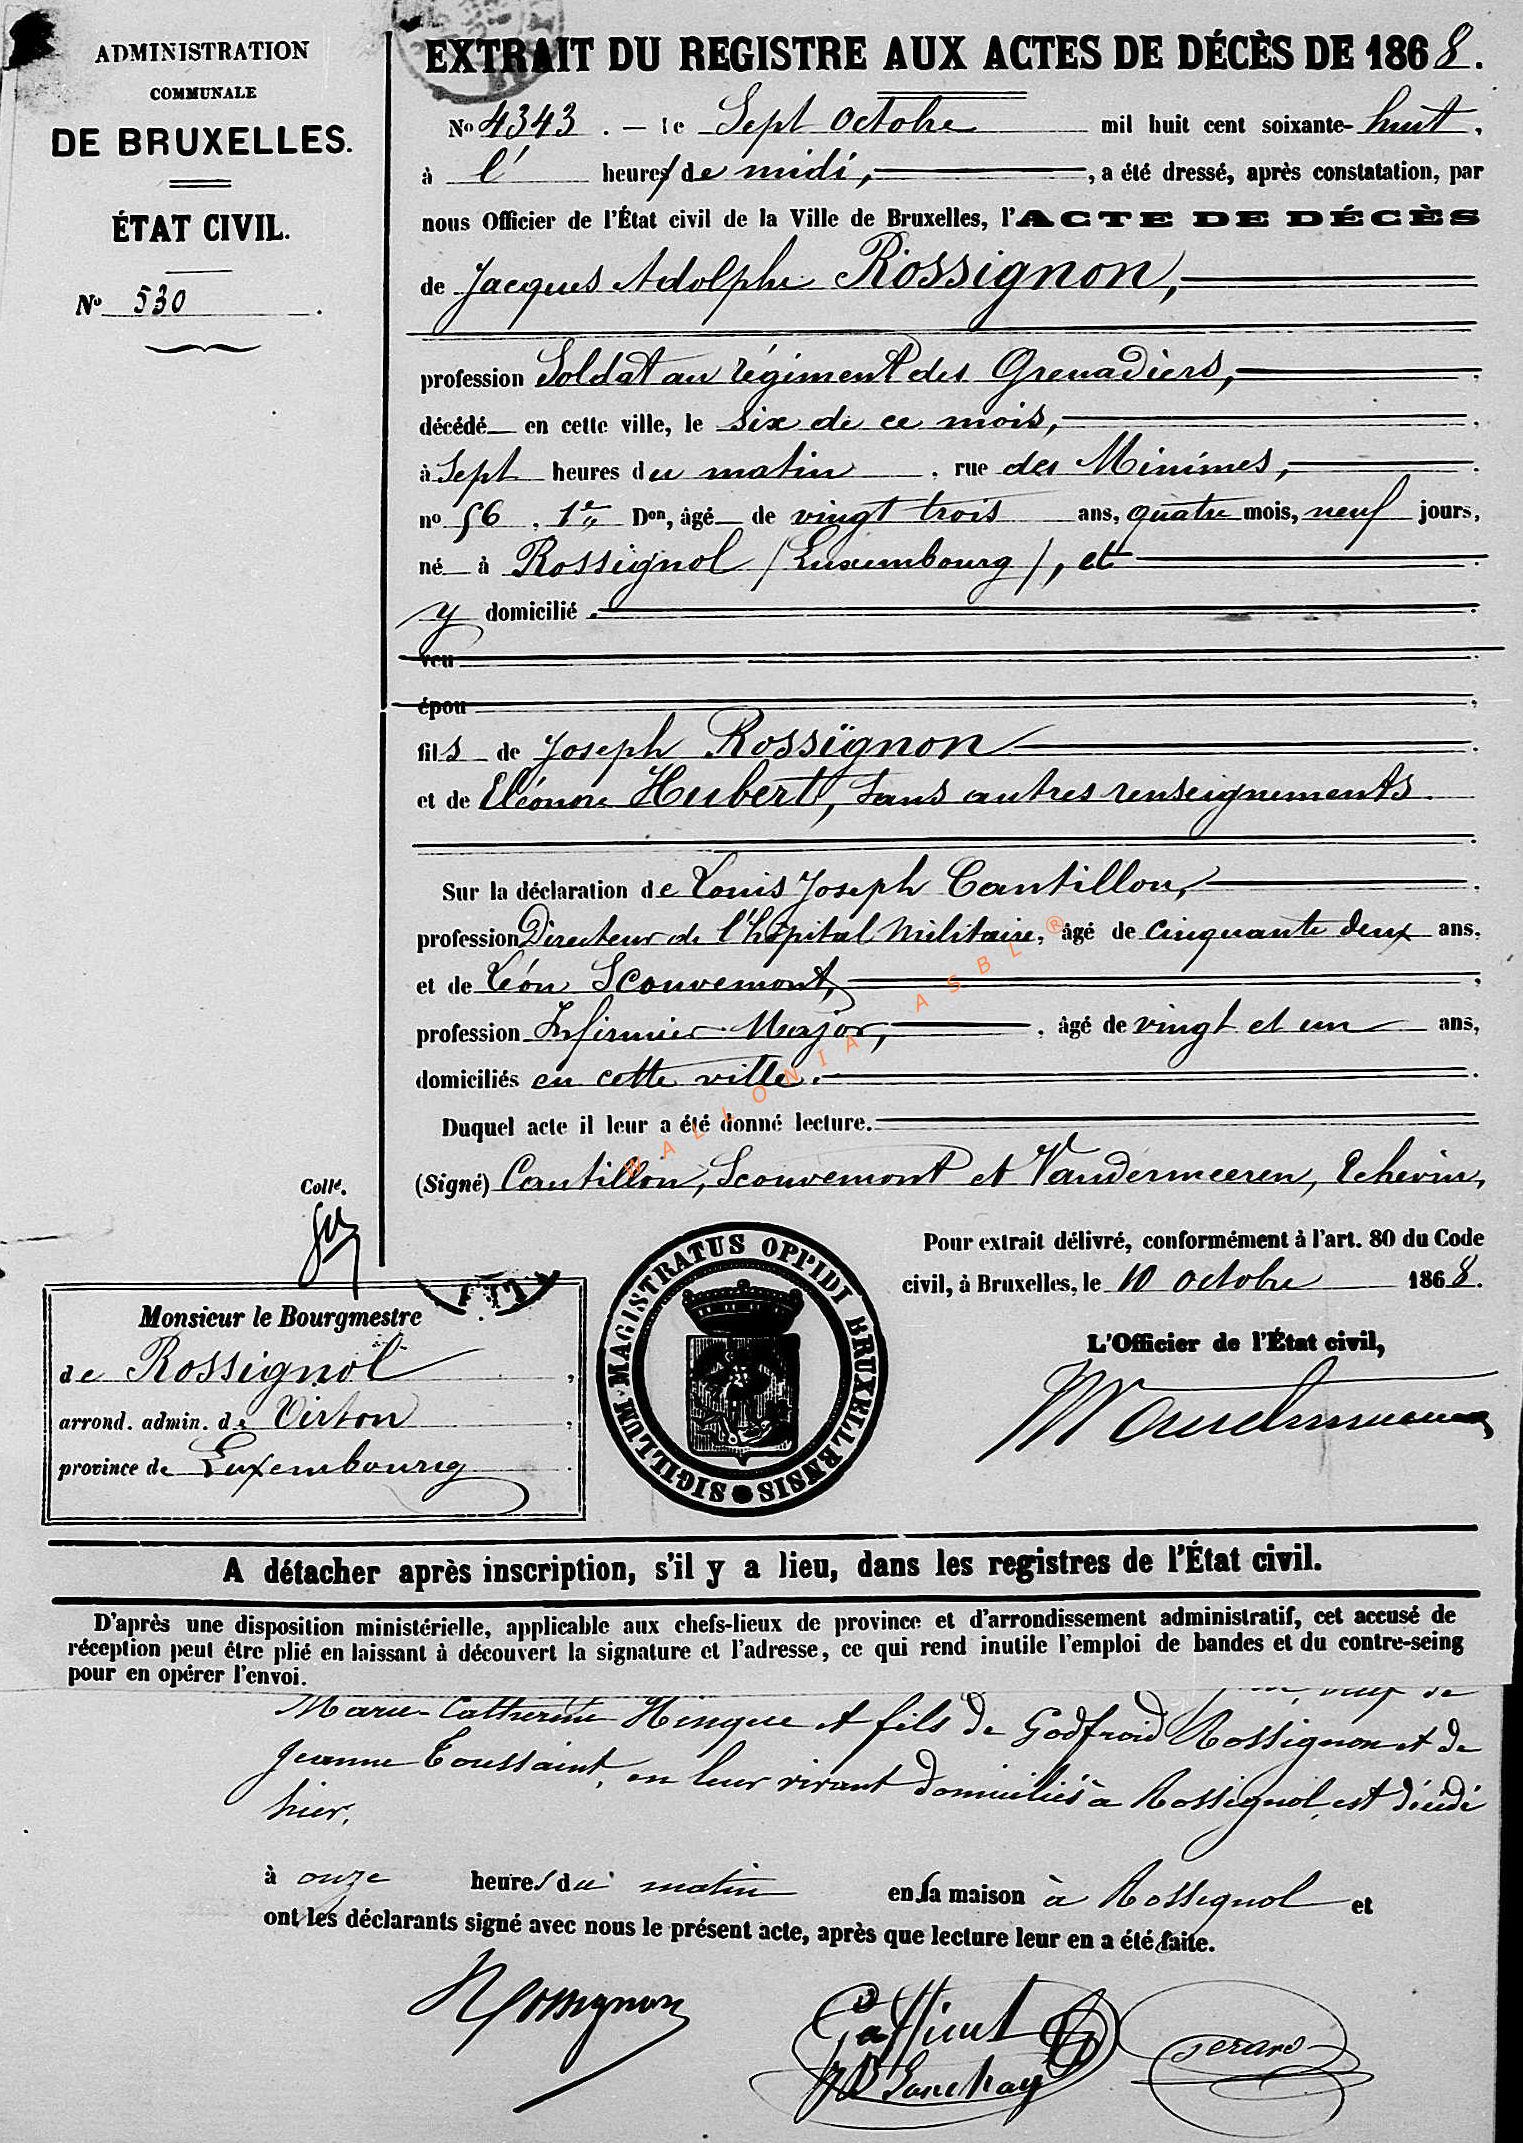 ADMINISTRATION
COMMUNALE
DE BRUXELLES.
ÉTAT CIVIL.
No 530.
EXTRAIT DU REGISTRE AUX ACTES DE DÉCÈS DE 1868.
No 4343. — le Sept Octobre mil huit cent soixante-huit,
à l' heure de midi, , a été dressé, après constatation, par
nous Officier de l'État civil de la Ville de Bruxelles, l'ACTE DE DÉCÈS
de Jacques Adolphe Rossignon,
profession Soldat au régiment des Grenadiers,
décédé en cette ville, le six de ce mois,
à Sept heures du matin, rue des Minimes,
no 56, 1re Don, âgé de vingt trois ans, quatre mois, neuf jours,
né à Rossignol (Luxembourg), et
y domicilié.
veu
épou
fils de Joseph Rossignon
et de Eléonore Hubert, sans autres renseignements.
Sur la déclaration de Louis Joseph Cantillon,
profession Directeur de l'hôpital Militaire, âgé de cinquante deux ans,
et de Léon Scouvemont,
profession Infirmier Major, , âgé de vingt et un ans,
domiciliés en cette ville.
Duquel acte il leur a été donné lecture.
(Signé) Cantillon, Scouvemont et Vandermeeren, Echevin,
Collé.
Pour extrait délivré, conformément à l'art. 80 du Code
civil, à Bruxelles, le 10 octobre 1868.
L'Officier de l'État civil,
SIGILLUM MAGISTRATUS OPPIDI BRUXELLENSIS
Monsieur le Bourgmestre
de Rossignol,
arrond. admin. de Virton,
province de Luxembourg.
WALLONIA ASBL ®
A détacher après inscription, s'il y a lieu, dans les registres de l'État civil.
D'après une disposition ministérielle, applicable aux chefs-lieux de province et d'arrondissement administratif, cet accusé de
réception peut être plié en laissant à découvert la signature et l'adresse, ce qui rend inutile l'emploi de bandes et du contre-seing
pour en opérer l'envoi.
Marie-Catherine Hinque et fils de Godfroid Rossignon et de
Jeanne Toussaint, en leur vivant domiciliés à Rossignol, est décédé
hier,
à onze heures du matin en sa maison à Rossignol et
ont les déclarants signé avec nous le présent acte, après que lecture leur en a été faite.
Rossignon
Gérard